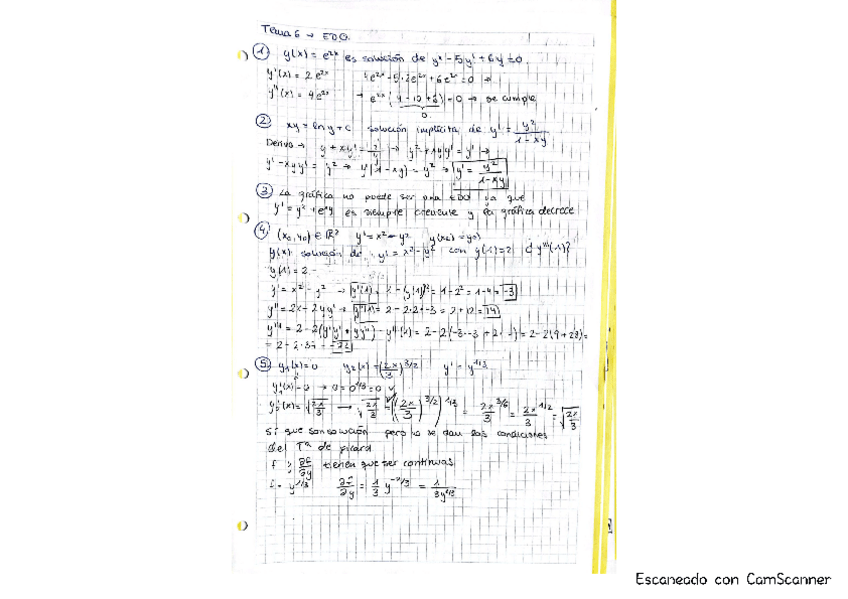 Tema 6 → EDO.
① y(x) = e^2x es solución de y'' - 5y' + 6y = 0
y'(x) = 2e^2x 4e^2x - 5·2e^2x + 6e^2x = 0 →
y''(x) = 4e^2x → e^2x (4 - 10 + 6) = 0 → se cumple
0
② xy = ln y + C solución implícita de y' = y²/(1 - xy)
Derivo → y + xy' = y'/y → y² + xyy' = y' →
y' - xyy' = y² → y'(1 - xy) = y² → y' = y²/(1 - xy)
③ La gráfica no puede ser una EDO ya que
y' = y² + e^xy es siempre creciente y la gráfica decrece
④ (x0, y0) ∈ ℝ² y' = x² - y² y(x0) = y0
y(x) solución de y' = x² - y² con y(1) = 2 ¿ y'''(1)?
y(1) = 2
y' = x² - y² → y'(1) = 1 - (y(1))² = 1 - 2² = 1 - 4 = -3
y'' = 2x - 2yy' → y''(1) = 2 - 2·2·-3 = 2 + 12 = 14
y''' = 2 - 2(y'y' + yy'') → y'''(x) = 2 - 2(-3·-3 + 2· ) = 2 - 2(9 + 28) =
= 2 - 2·37 = -72
⑤ y1(x) = 0 y2(x) = (2x/3)^3/2 y' = y^1/3
y1'(x) = 0 → 0 = 0^1/3 = 0 ✓
y2'(x) = √(2x/3) → √(2x/3) = ((2x/3)^3/2)^1/3 = 2x/3^3/6 = 2x/3^1/2 = √(2x/3)
Sí que son solución pero no se dan las condiciones
del Tª de Picard
f y ∂f/∂y tienen que ser continuas
f = y^1/3 ∂f/∂y = 1/3 y^-2/3 = 1/(3y^2/3)
Escaneado con CamScanner